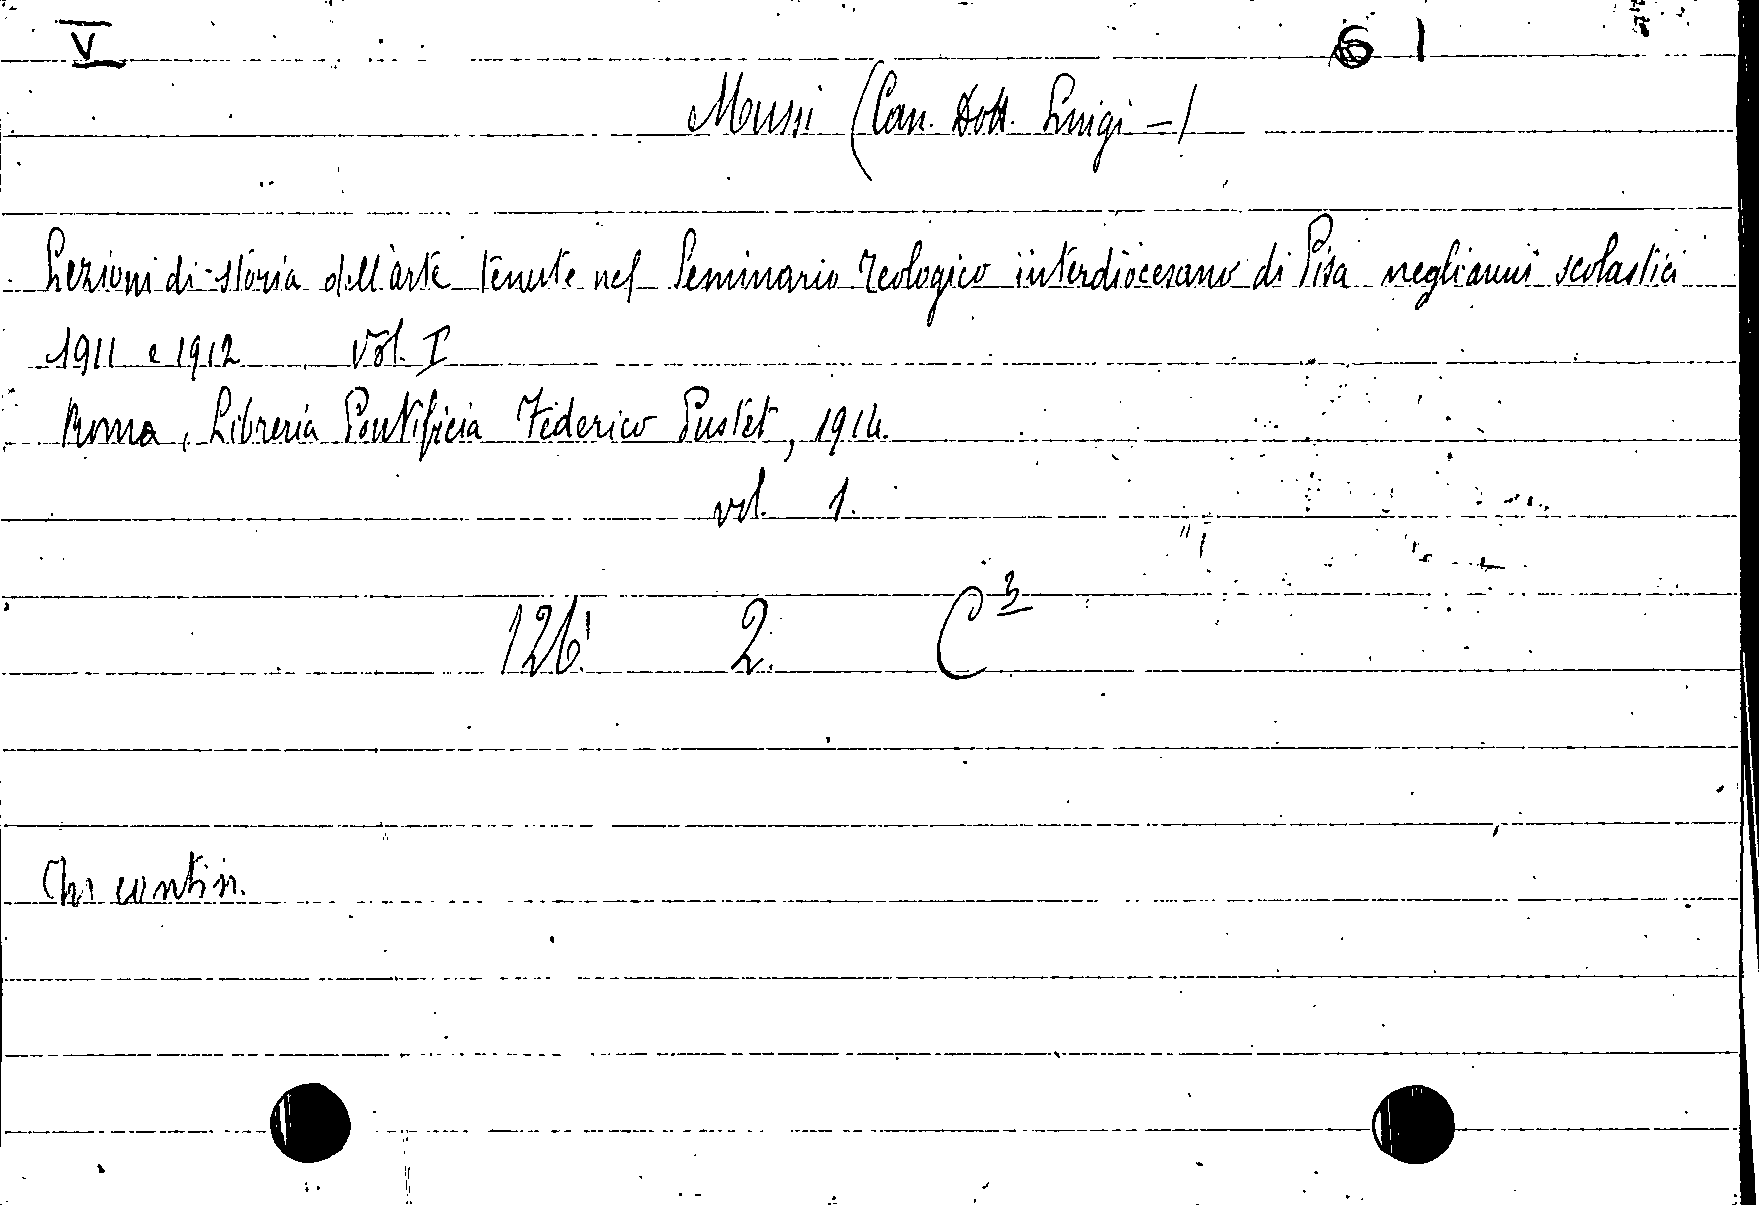 V 6 1
Mussi (Can. Dott. Luigi -)
Lezioni di storia dell'arte tenute nel Seminario Teologico interdiocesano di Pisa negli anni scolastici
1911 e 1912 Vol. I
Roma, Libreria Pontificia Federico Pustet, 1914.
vol. 1.
126! 2. C³
contin.